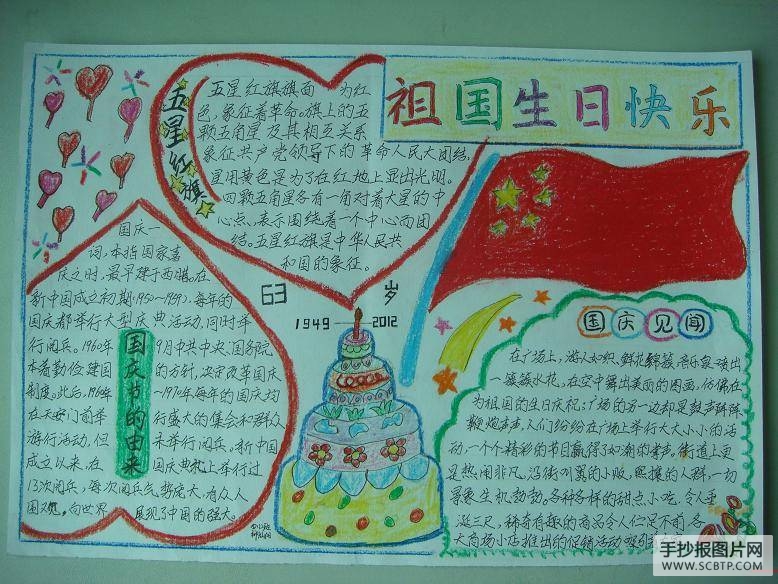 祖国生日快乐
五星红旗
五星红旗旗面 为红
色，象征着革命。旗上的五
颗五角星及其相互关系
象征共产党领导下的革命人民大团结。
星用黄色是为了在红地上显出光明。
四颗五角星各有一角对着大星的中
心点，表示围绕着一个中心而团
结。五星红旗是中华人民共
和国的象征。
国庆节的由来
国庆一
词，本指国家喜
庆之时，最早建于西腊。在
新中国成立初期(1950—1959)，每年的
国庆都举行大型庆典活动，同时举
行阅兵。1960年 9月中共中央、国务院
本着勤俭建国 的方针，决定改革国庆
制度。此后，1960年 —1970年每年的国庆均
在天安门前举 行盛大的集会和群众
游行活动，但 未举行阅兵。新中国
成立以来，在 国庆典礼上举行过
13次阅兵，每次阅兵气势庞大，有众人
向世界 展现了中国的强大。
63 岁
1949 2012
国庆见闻
在广场上，游人如织，鲜花锦簇，音乐泉喷出
一簇簇水花，在空中舞出美丽的图画，仿佛在
为祖国的生日庆祝；广场的另一边却是鼓声阵阵
鞭炮声声，人们纷纷在广场上举行大大小小的活
动，一个个精彩的节目赢得了如潮的掌声。街道上更
是热闹非凡，沿街叫卖的小贩，熙攘的人群，一切
景象生机勃勃，各种各样的甜点小吃 令人垂
涎三尺，稀奇有趣的商品令人伫足不前，各
大商场小店推出的促销活动
手抄报图片网
WWW.SCBTP.COM